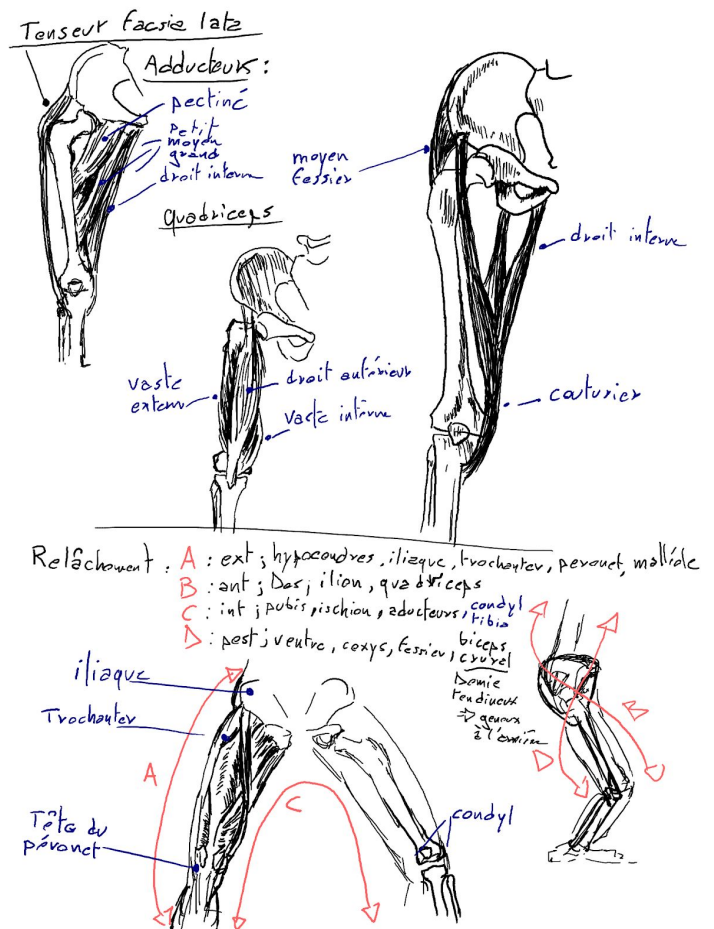 Tenseur facsie lata
Adducteurs :
pectiné
petit
moyen
grand
droit interne
moyen
fessier
Quadriceps
droit interne
vaste
extern
droit antérieur
vaste interne
couturier
Relâchement : A : ext ; hypocondres, iliaque, trochanter, peronet, malléole
B : ant ; Dos ; ilion, quadriceps
C : int ; pubis, ischion, aducteurs, condyl
tibia
D : post ; ventre, coxys, fessier, biceps
crurel
Demie
tendineux
=> genoux
à l'arrière
iliaque
Trochanter
A
B
C
D
condyl
Tête du
péronet